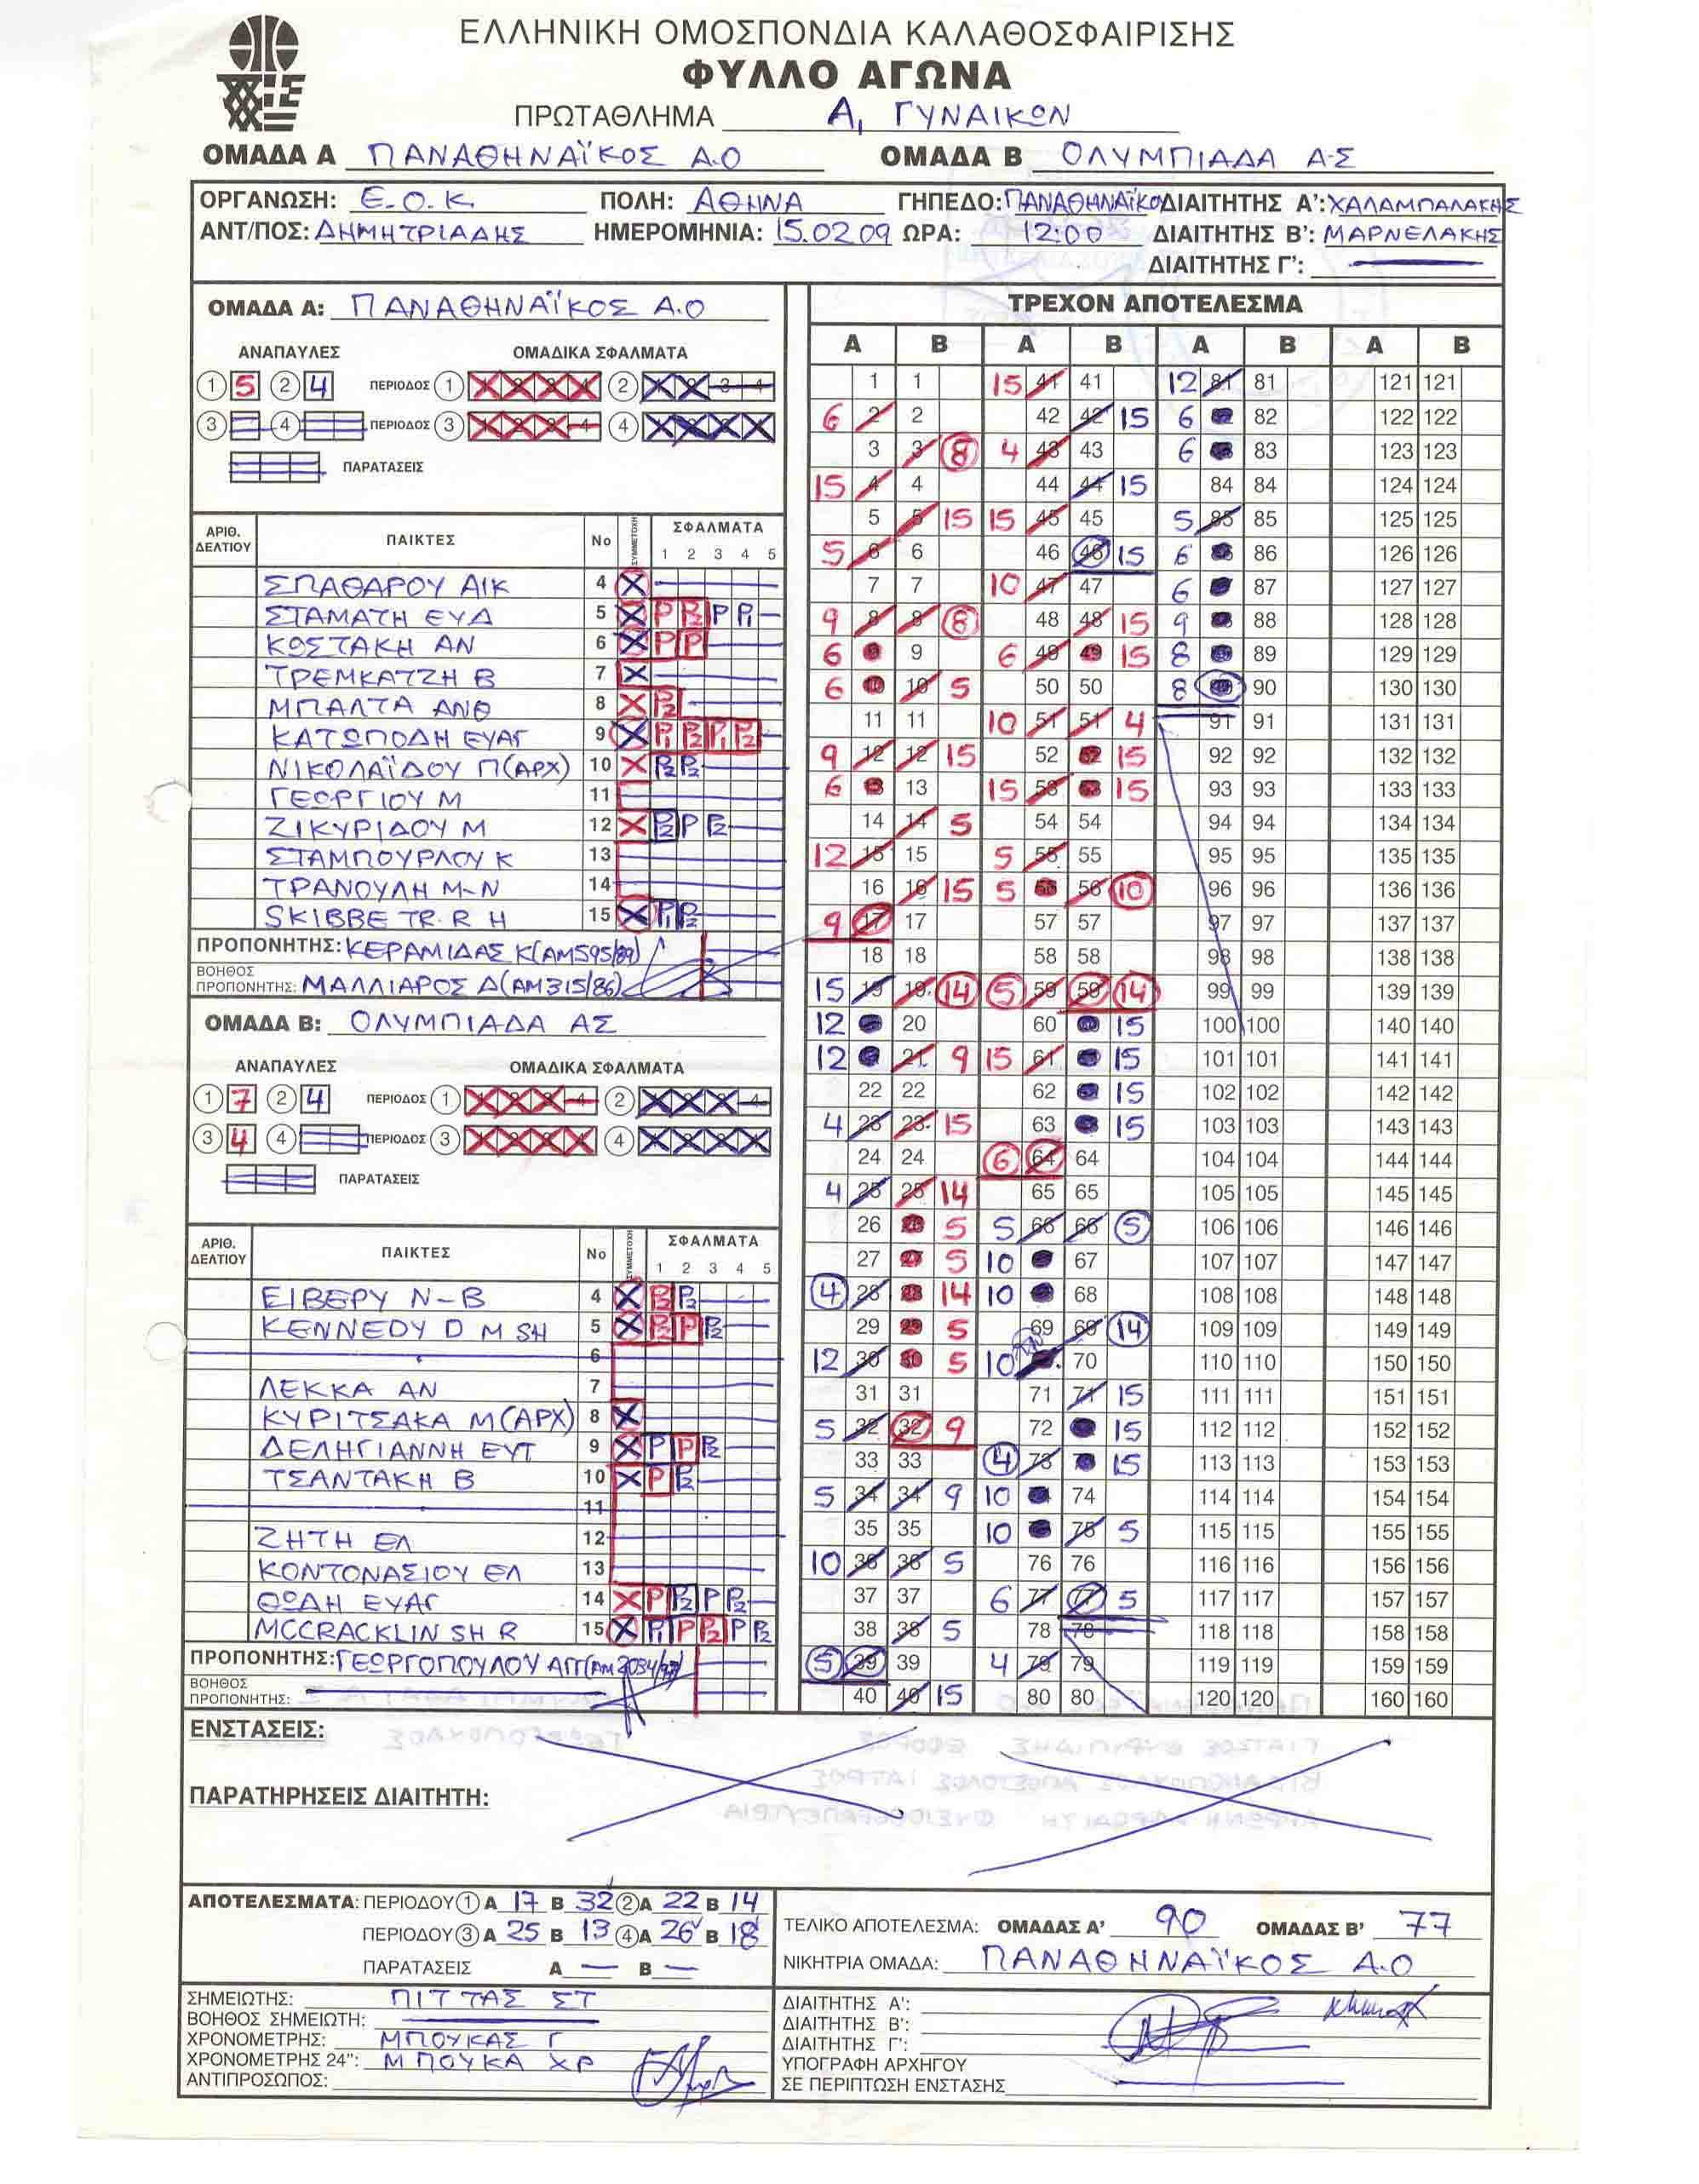 ΕΛΛΗΝΙΚΗ ΟΜΟΣΠΟΝΔΙΑ ΚΑΛΑΘΟΣΦΑΙΡΙΣΗΣ
ΦΥΛΛΟ ΑΓΩΝΑ
ΠΡΩΤΑΘΛΗΜΑ Α1 ΓΥΝΑΙΚΩΝ
ΟΜΑΔΑ Α ΠΑΝΑΘΗΝΑΪΚΟΣ Α.Ο ΟΜΑΔΑ Β ΟΛΥΜΠΙΑΔΑ Α.Σ
ΟΡΓΑΝΩΣΗ: Ε.Ο.Κ. ΠΟΛΗ: ΑΘΗΝΑ ΓΗΠΕΔΟ: ΠΑΝΑΘΗΝΑΪΚΟ ΔΙΑΙΤΗΤΗΣ Α': ΧΑΛΑΜΠΑΛΑΚΗΣ
ΑΝΤ/ΠΟΣ: ΔΗΜΗΤΡΙΑΔΗΣ ΗΜΕΡΟΜΗΝΙΑ: 15.02.09 ΩΡΑ: 12:00 ΔΙΑΙΤΗΤΗΣ Β': ΜΑΡΝΕΛΑΚΗΣ
ΔΙΑΙΤΗΤΗΣ Γ':
ΟΜΑΔΑ Α: ΠΑΝΑΘΗΝΑΪΚΟΣ Α.Ο
ΑΝΑΠΑΥΛΕΣ ΟΜΑΔΙΚΑ ΣΦΑΛΜΑΤΑ
1 5 2 4 ΠΕΡΙΟΔΟΣ 1 2
3 4 ΠΕΡΙΟΔΟΣ 3 4
ΠΑΡΑΤΑΣΕΙΣ
ΑΡΙΘ. ΔΕΛΤΙΟΥ ΠΑΙΚΤΕΣ Νο ΣΥΜΜΕΤΟΧΗ ΣΦΑΛΜΑΤΑ 1 2 3 4 5
ΣΠΑΘΑΡΟΥ ΑΙΚ 4 X
ΣΤΑΜΑΤΗ ΕΥΔ 5 X P P2 P P1
ΚΩΣΤΑΚΗ ΑΝ 6 X P P
ΤΡΕΜΚΑΤΖΗ Β 7 X
ΜΠΑΛΤΑ ΑΝΘ 8 X P2
ΚΑΤΩΠΟΔΗ ΕΥΑΓ 9 X P1 P2 P1 P2
ΝΙΚΟΛΑΪΔΟΥ Π(ΑΡΧ) 10 X P2 P2
ΓΕΩΡΓΙΟΥ Μ 11
ΖΙΚΥΡΙΔΟΥ Μ 12 X P2 P P2
ΣΤΑΜΠΟΥΡΛΟΥ Κ 13
ΤΡΑΝΟΥΛΗ Μ-Ν 14
SKIBBE TR. R H 15 X P1 P2
ΠΡΟΠΟΝΗΤΗΣ: ΚΕΡΑΜΙΔΑΣ Κ(ΑΜ595/89)
ΒΟΗΘΟΣ ΠΡΟΠΟΝΗΤΗΣ: ΜΑΛΛΙΑΡΟΣ Δ(ΑΜ315/86)
ΟΜΑΔΑ Β: ΟΛΥΜΠΙΑΔΑ ΑΣ
ΑΝΑΠΑΥΛΕΣ ΟΜΑΔΙΚΑ ΣΦΑΛΜΑΤΑ
1 7 2 4 ΠΕΡΙΟΔΟΣ 1 2
3 4 4 ΠΕΡΙΟΔΟΣ 3 4
ΠΑΡΑΤΑΣΕΙΣ
ΑΡΙΘ. ΔΕΛΤΙΟΥ ΠΑΙΚΤΕΣ Νο ΣΥΜΜΕΤΟΧΗ ΣΦΑΛΜΑΤΑ 1 2 3 4 5
ΕΙΒΕΡΥ Ν-Β 4 X P2 P2
KENNEDY D M SH 5 X P2 P P2
6
ΛΕΚΚΑ ΑΝ 7
ΚΥΡΙΤΣΑΚΑ Μ(ΑΡΧ) 8 X
ΔΕΛΗΓΙΑΝΝΗ ΕΥΤ 9 X P P P2
ΤΣΑΝΤΑΚΗ Β 10 X P P2
11
ΖΗΤΗ ΕΛ 12
ΚΟΝΤΟΝΑΣΙΟΥ ΕΛ 13
ΘΩΔΗ ΕΥΑΓ 14 X P P2 P P2
MCCRACKLIN SH R 15 X P1 P P2 P P2
ΠΡΟΠΟΝΗΤΗΣ: ΓΕΩΡΓΟΠΟΥΛΟΥ ΑΓΓ
ΒΟΗΘΟΣ ΠΡΟΠΟΝΗΤΗΣ:
ΤΡΕΧΟΝ ΑΠΟΤΕΛΕΣΜΑ
Α Β Α Β Α Β Α Β
1 1 15 41 41 12 81 81 121 121
6 2 2 42 42 15 6 82 122 122
3 3 8 4 43 43 6 83 123 123
15 4 4 44 44 15 84 84 124 124
5 5 15 15 45 45 5 85 85 125 125
5 6 6 46 46 15 6 86 126 126
7 7 10 47 47 6 87 127 127
9 8 8 8 48 48 15 9 88 128 128
6 9 6 49 15 8 89 129 129
6 10 5 50 50 8 90 130 130
11 11 10 51 51 4 91 91 131 131
9 12 12 15 52 15 92 92 132 132
6 13 15 53 15 93 93 133 133
14 14 5 54 54 94 94 134 134
12 15 15 5 55 55 95 95 135 135
16 16 15 5 56 10 96 96 136 136
9 17 17 57 57 97 97 137 137
18 18 58 58 98 98 138 138
15 19 19 14 5 59 59 14 99 99 139 139
12 20 60 15 100 100 140 140
12 21 9 15 61 15 101 101 141 141
22 22 62 15 102 102 142 142
4 23 23 15 63 15 103 103 143 143
24 24 6 64 64 104 104 144 144
4 25 25 14 65 65 105 105 145 145
26 5 5 66 66 5 106 106 146 146
27 5 10 67 107 107 147 147
4 28 14 10 68 108 108 148 148
29 5 69 69 14 109 109 149 149
12 30 5 10 70 110 110 150 150
31 31 71 71 15 111 111 151 151
5 32 32 9 72 15 112 112 152 152
33 33 4 73 15 113 113 153 153
5 34 34 9 10 74 114 114 154 154
35 35 10 75 5 115 115 155 155
10 36 36 5 76 76 116 116 156 156
37 37 6 77 77 5 117 117 157 157
38 38 5 78 78 118 118 158 158
5 39 39 4 79 79 119 119 159 159
40 40 15 80 80 120 120 160 160
ΕΝΣΤΑΣΕΙΣ:
ΠΑΡΑΤΗΡΗΣΕΙΣ ΔΙΑΙΤΗΤΗ:
ΑΠΟΤΕΛΕΣΜΑΤΑ: ΠΕΡΙΟΔΟΥ 1 Α 17 Β 32 2 Α 22 Β 14
ΠΕΡΙΟΔΟΥ 3 Α 25 Β 13 4 Α 26 Β 18
ΠΑΡΑΤΑΣΕΙΣ Α — Β —
ΤΕΛΙΚΟ ΑΠΟΤΕΛΕΣΜΑ: ΟΜΑΔΑΣ Α' 90 ΟΜΑΔΑΣ Β' 77
ΝΙΚΗΤΡΙΑ ΟΜΑΔΑ: ΠΑΝΑΘΗΝΑΪΚΟΣ Α.Ο
ΣΗΜΕΙΩΤΗΣ: ΠΙΤΤΑΣ ΣΤ
ΒΟΗΘΟΣ ΣΗΜΕΙΩΤΗ:
ΧΡΟΝΟΜΕΤΡΗΣ: ΜΠΟΥΚΑΣ Γ
ΧΡΟΝΟΜΕΤΡΗΣ 24": ΜΠΟΥΚΑ ΧΡ
ΑΝΤΙΠΡΟΣΩΠΟΣ:
ΔΙΑΙΤΗΤΗΣ Α':
ΔΙΑΙΤΗΤΗΣ Β':
ΔΙΑΙΤΗΤΗΣ Γ':
ΥΠΟΓΡΑΦΗ ΑΡΧΗΓΟΥ
ΣΕ ΠΕΡΙΠΤΩΣΗ ΕΝΣΤΑΣΗΣ